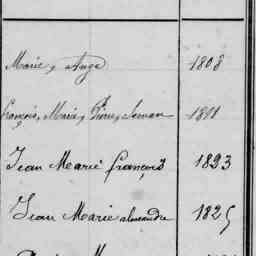 Marie, Ange 1808
François, Marie, Pierre, 1811
Jean Marie françois 1823
Jean Marie alexandre 1825